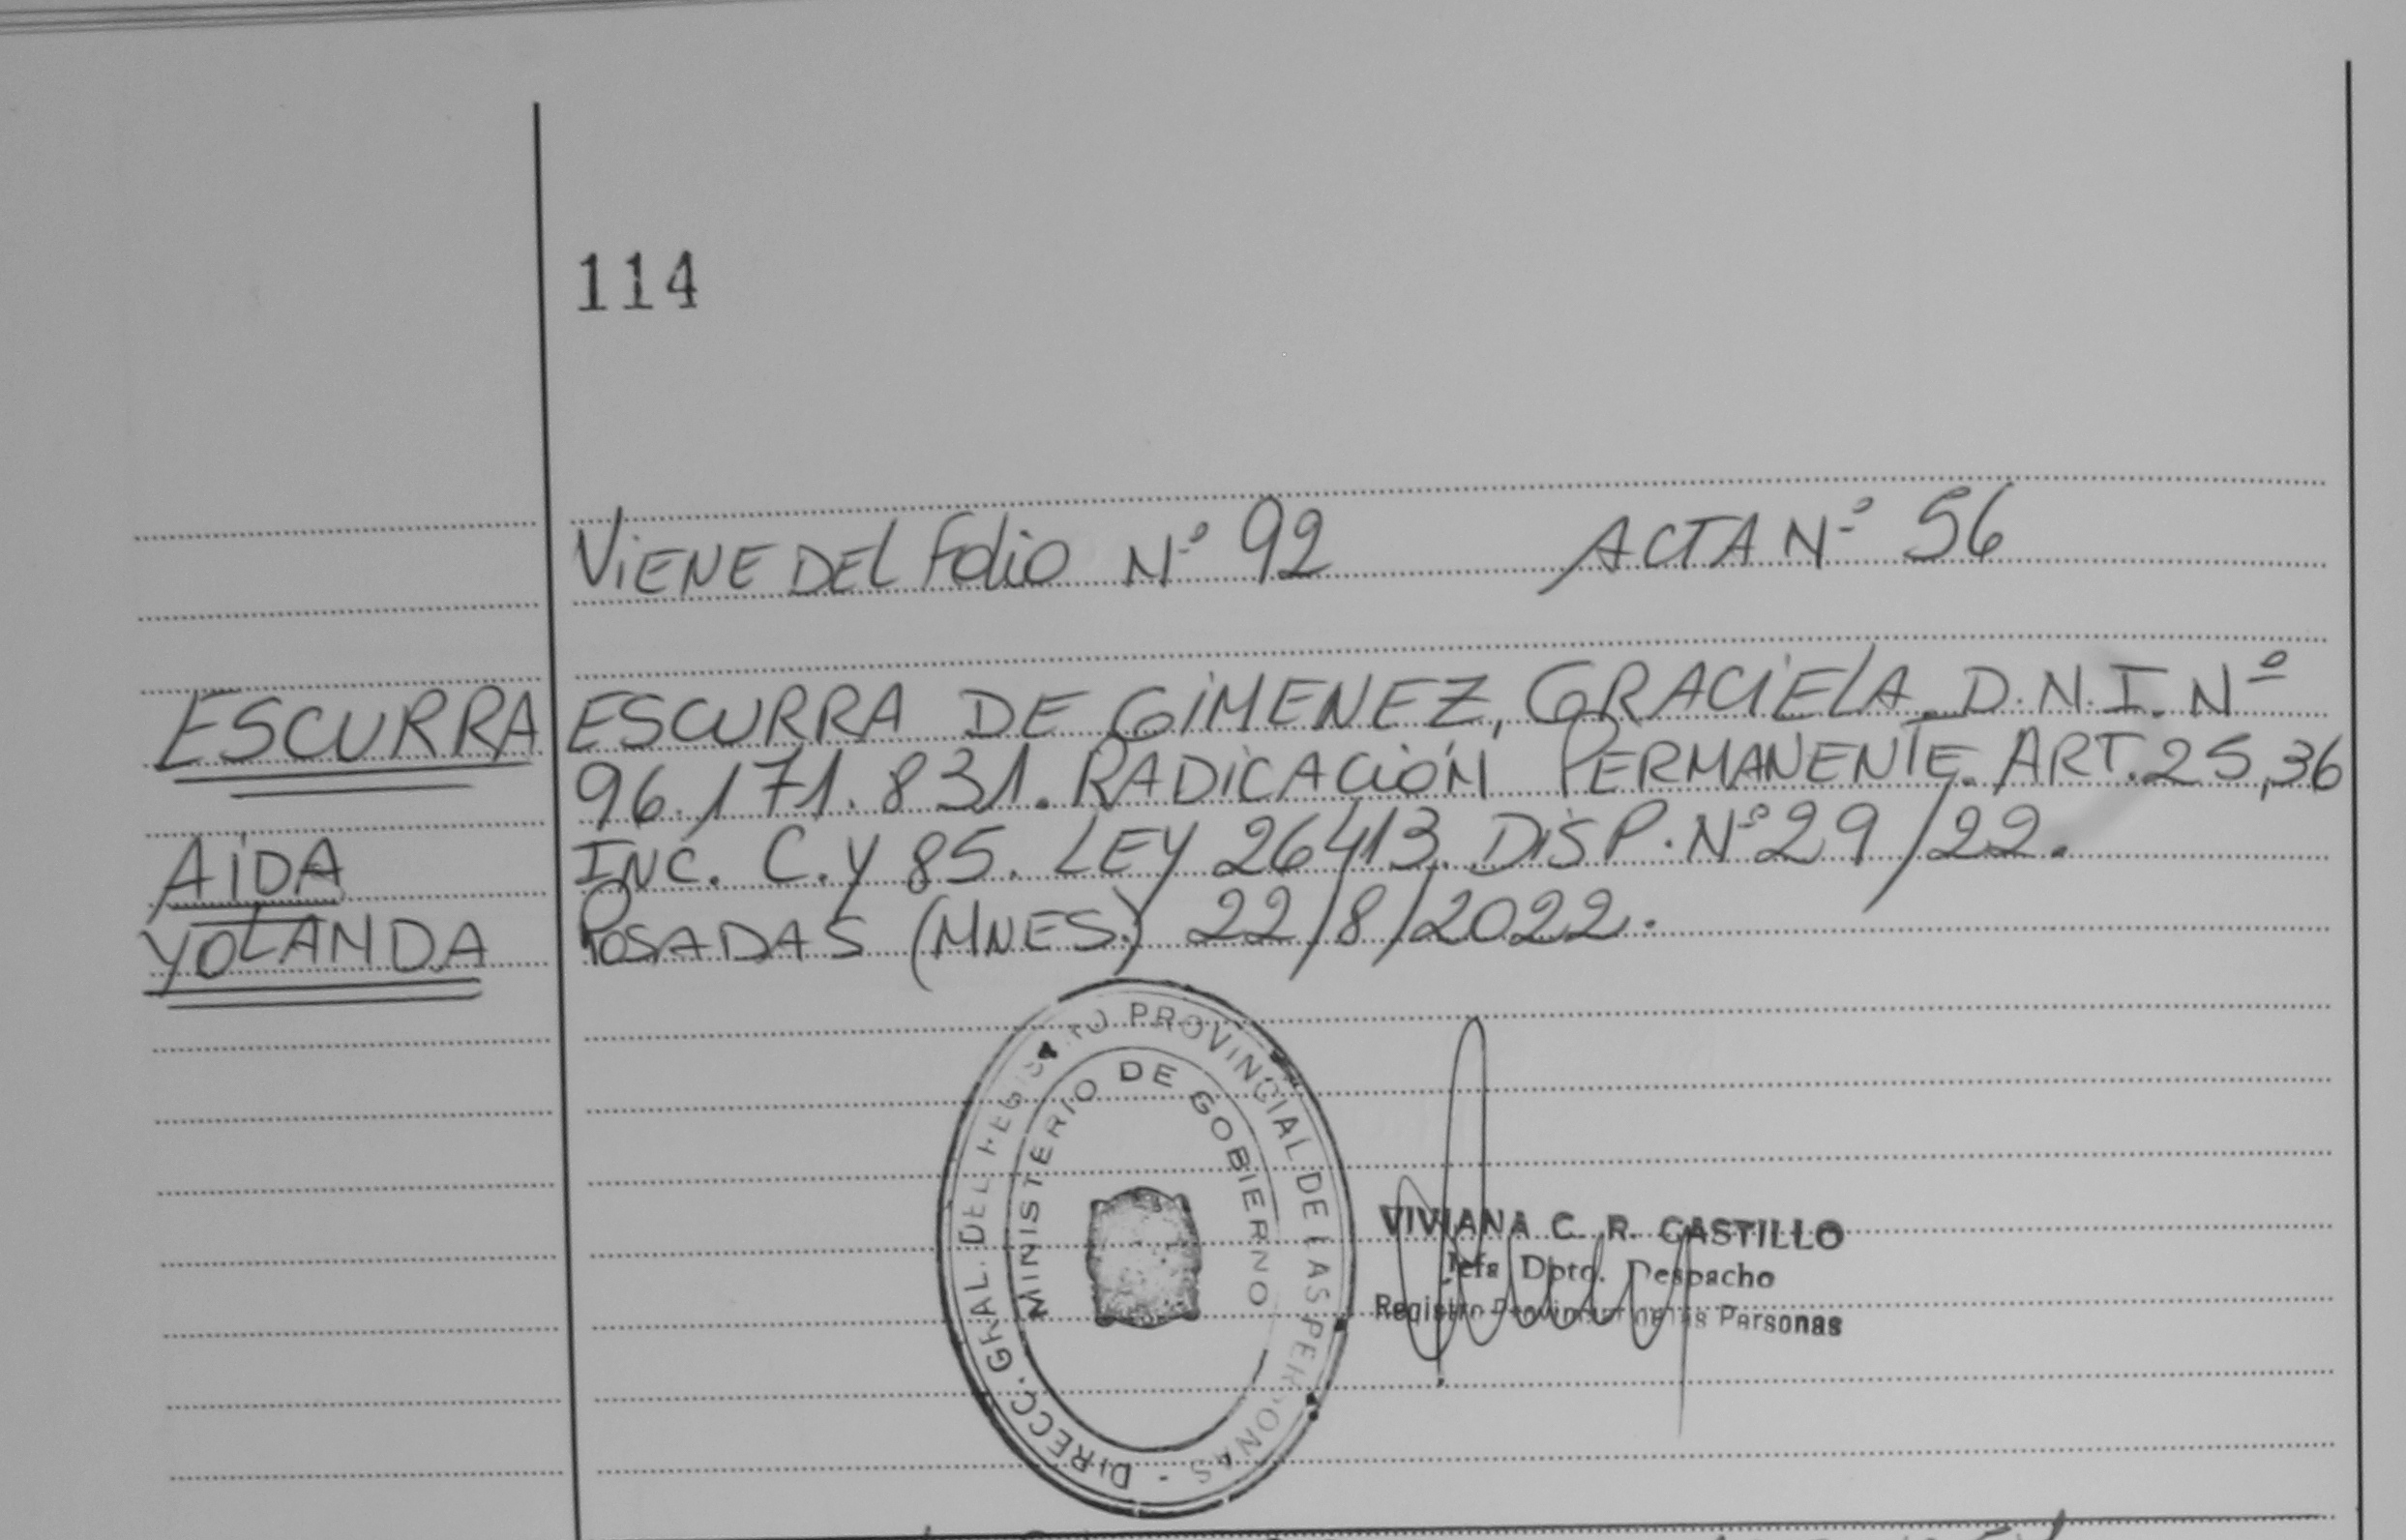 114
VIENE DEL FOLIO Nº 92 ACTA Nº 56
ESCURRA
AIDA
YOLANDA
ESCURRA DE GIMENEZ, GRACIELA. D.N.I. Nº
96.171.831. RADICACIÓN PERMANENTE. ART. 25, 36
INC. C. Y 85. LEY 26413. DISP. Nº 29/22.
POSADAS (MNES.) 22/8/2022.
DIRECC. GRAL. DEL REGISTRO PROVINCIAL DE LAS PERSONAS -
MINISTERIO DE GOBIERNO
VIVIANA C. R. CASTILLO
Jefa Dpto. Despacho
Registro Provincial de las Personas